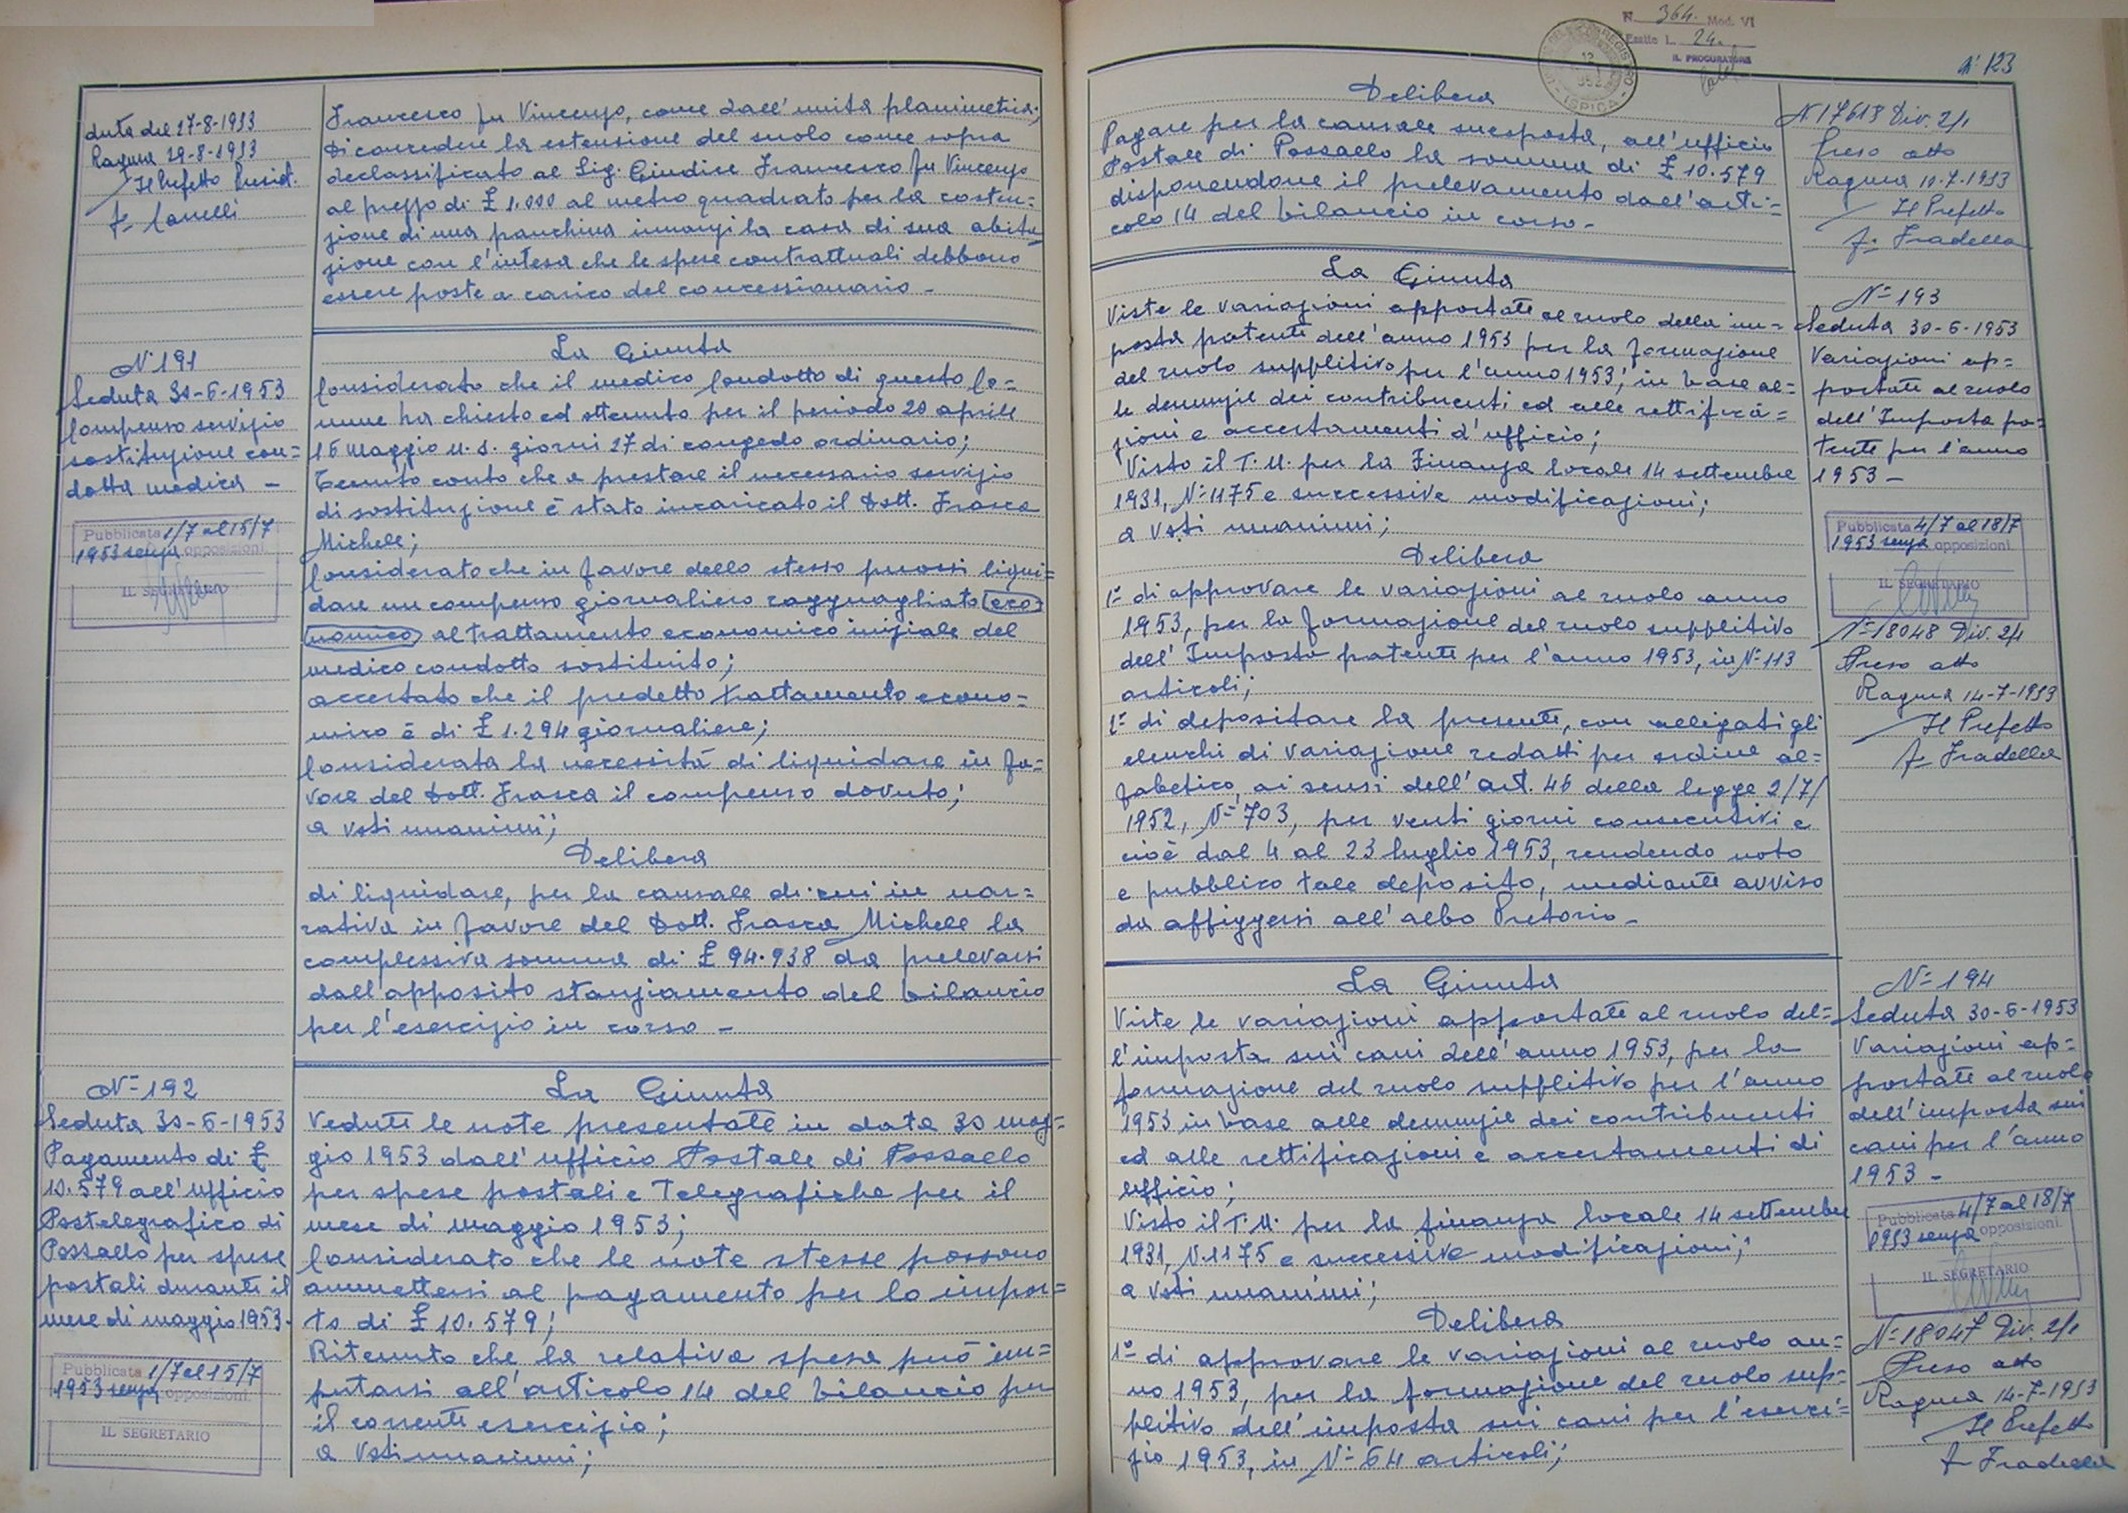 duta del 17-8-1953
Ragusa 29-8-1953
Il Prefetto Presid.
F.
Francesco fu Vincenzo, come dall'unita planimetria;
Di concedere la estensione del suolo come sopra
declassificato al Sig. Giudice Francesco fu Vincenzo
al prezzo di £ 1.000 al metro quadrato per la costru=
zione di una panchina innanzi la casa di sua abita
zione con l'intesa che le spese contrattuali debbono
essere poste a carico del concessionario -
N° 191
Seduta 30-6-1953
Compenso servizio
sostituzione con=
dotta medica -
Pubblicata 1/7 al 15/7
1953 senza opposizioni.
IL SEGRETARIO
La Giunta
Considerato che il medico Condotto di questo Co=
mune ha chiesto ed ottenuto per il periodo 20 aprile
16 maggio u.s. giorni 27 di congedo ordinario;
Tenuto conto che a prestare il necessario servizio
di sostituzione è stato incaricato il Dott. Frasca
Michele;
Considerato che in favore dello stesso puossi liqui=
dare un compenso giornaliero ragguagliato (eco=
nomico) al trattamento economico iniziale del
medico condotto sostituito;
accertato che il predetto trattamento econo=
mico è di £ 1.294 giornaliere;
Considerata la necessità di liquidare in fa=
vore del Dott. Frasca il compenso dovuto;
a voti unanimi;
Delibera
di liquidare, per la causale di cui in nar=
rativa in favore del Dott. Frasca Michele la
complessiva somma di £ 94.938 da prelevarsi
dall'apposito stanziamento del bilancio
per l'esercizio in corso -
N= 192
Seduta 30-6-1953
Pagamento di £
10.579 all'ufficio
Postelegrafico di
Pozzallo per spese
postali durante il
mese di maggio 1953.
Pubblicata 1/7 al 15/7
1953 senza opposizioni.
IL SEGRETARIO
La Giunta
Vedute le note presentate in data 30 mag=
gio 1953 dall'ufficio Postale di Pozzallo
per spese postali e Telegrafiche per il
mese di maggio 1953;
Considerato che le note stesse possono
ammettersi al pagamento per lo impor=
to di £ 10.579;
Ritenuto che la relativa spesa può im=
putarsi all'articolo 14 del bilancio per
il corrente esercizio;
a voti unanimi;
N. 364. Mod. VI
Esatte L. 24.
IL PROCURATORE
ISPICA
N° 123
Delibera
Pagare per la causale suesposta, all'ufficio
Postale di Pozzallo la somma di £ 10.579
disponendone il prelevamento dall'arti=
colo 14 del bilancio in corso -
N 17613 Div. 2/1
Preso atto
Ragusa 10-7-1953
Il Prefetto
F. Fradella
La Giunta
Viste le variazioni apportate al ruolo della im=
posta patente dell'anno 1953 per la formazione
del ruolo suppletivo per l'anno 1953; in base al=
le denunzie dei contribuenti ed alle rettifica=
zioni e accertamenti d'ufficio;
Visto il T.U. per la Finanza locale 14 settembre
1931, N=1175 e successive modificazioni;
a voti unanimi;
Delibera
1° di approvare le variazioni al ruolo anno
1953, per la formazione del ruolo suppletivo
dell'Imposta patente per l'anno 1953, in N= 113
articoli;
1= di depositare la presente, con allegati gli
elenchi di variazione redatti per ordine al=
fabetico, ai sensi dell'art. 46 della legge 2/7/
1952, N= 703, per venti giorni consecutivi e
cioè dal 4 al 23 luglio 1953, rendendo noto
e pubblico tale deposito, mediante avviso
da affiggersi all'albo Pretorio -
N= 193
Seduta 30-6-1953
Variazioni ap=
portate al ruolo
dell'Imposta pa=
tente per l'anno
1953 -
Pubblicata 4/7 al 18/7
1953 senza opposizioni
IL SEGRETARIO
N= 18048 Div. 2/1
Preso atto
Ragusa 14-7-1953
Il Prefetto
F. Fradella
La Giunta
Viste le variazioni apportate al ruolo del=
l'imposta sui cani dell'anno 1953, per la
formazione del ruolo suppletivo per l'anno
1953 in base alle denunzie dei contribuenti
ed alle rettificazioni e accertamenti di
ufficio;
Visto il T.U. per la finanza locale 14 settembre
1931, N.1175 e successive modificazioni;
a voti unanimi;
Delibera
1° di approvare le variazioni al ruolo an=
no 1953, per la formazione del ruolo sup=
pletivo dell'imposta sui cani per l'eserci=
zio 1953, in N= 64 articoli;
N= 194
Seduta 30-6-1953
Variazioni ap=
portate al ruolo
dell'imposta sui
cani per l'anno
1953 -
Pubblicata 4/7 al 18/7
1953 senza opposizioni.
IL SEGRETARIO
N= 18047 Div. 2/1
Preso atto
Ragusa 14-7-1953
Il Prefetto
F. Fradella